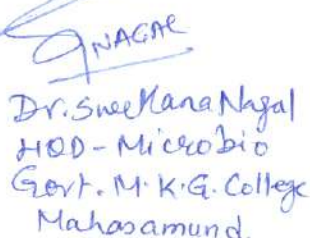 NAGAL
Dr. Swekana Nagal
HOD - Microbio
Govt. M.K.G. College
Mahasamund.